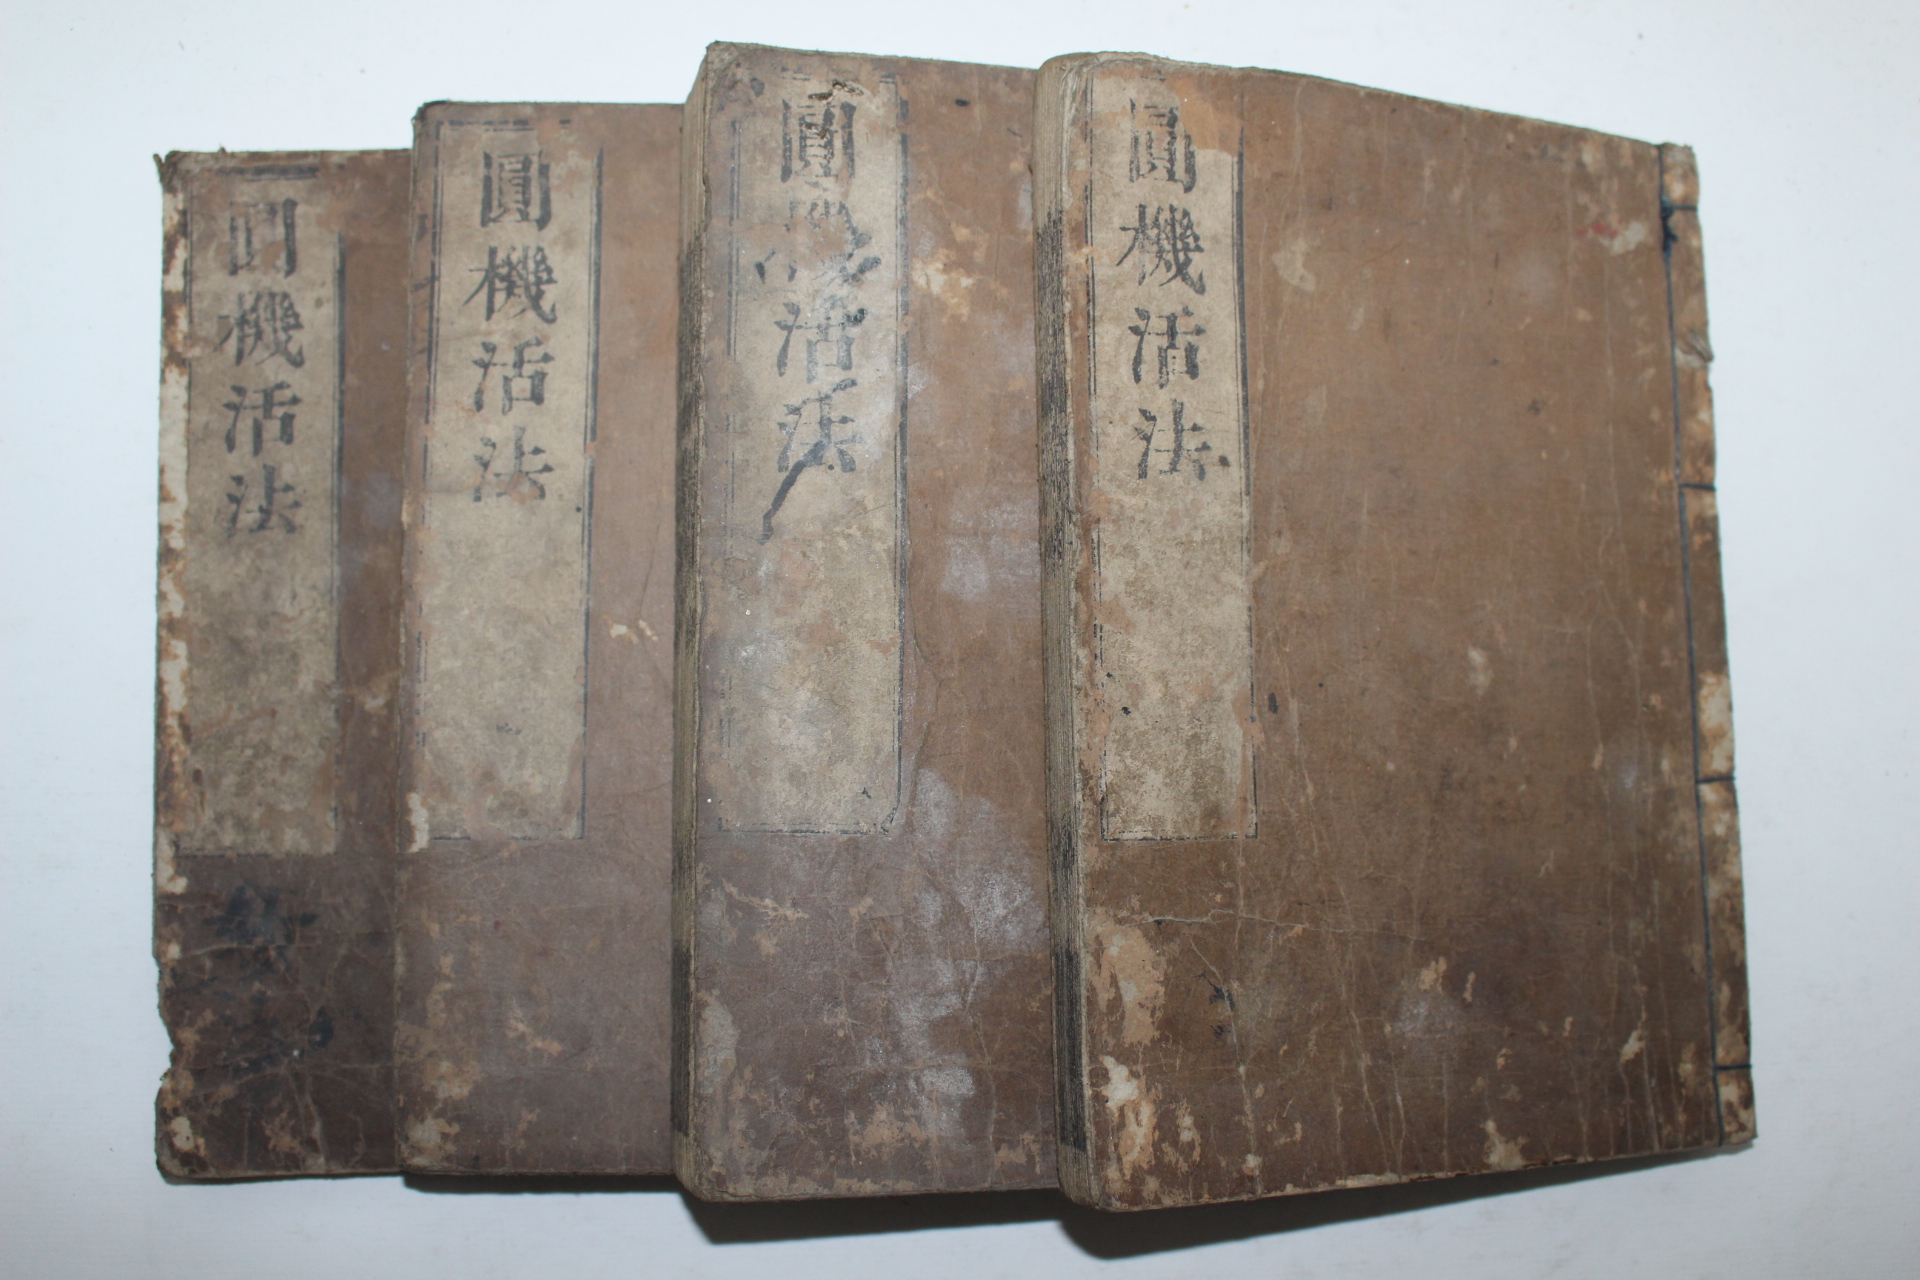 圓機活法
圓機活法
圓機活法
圓機活法